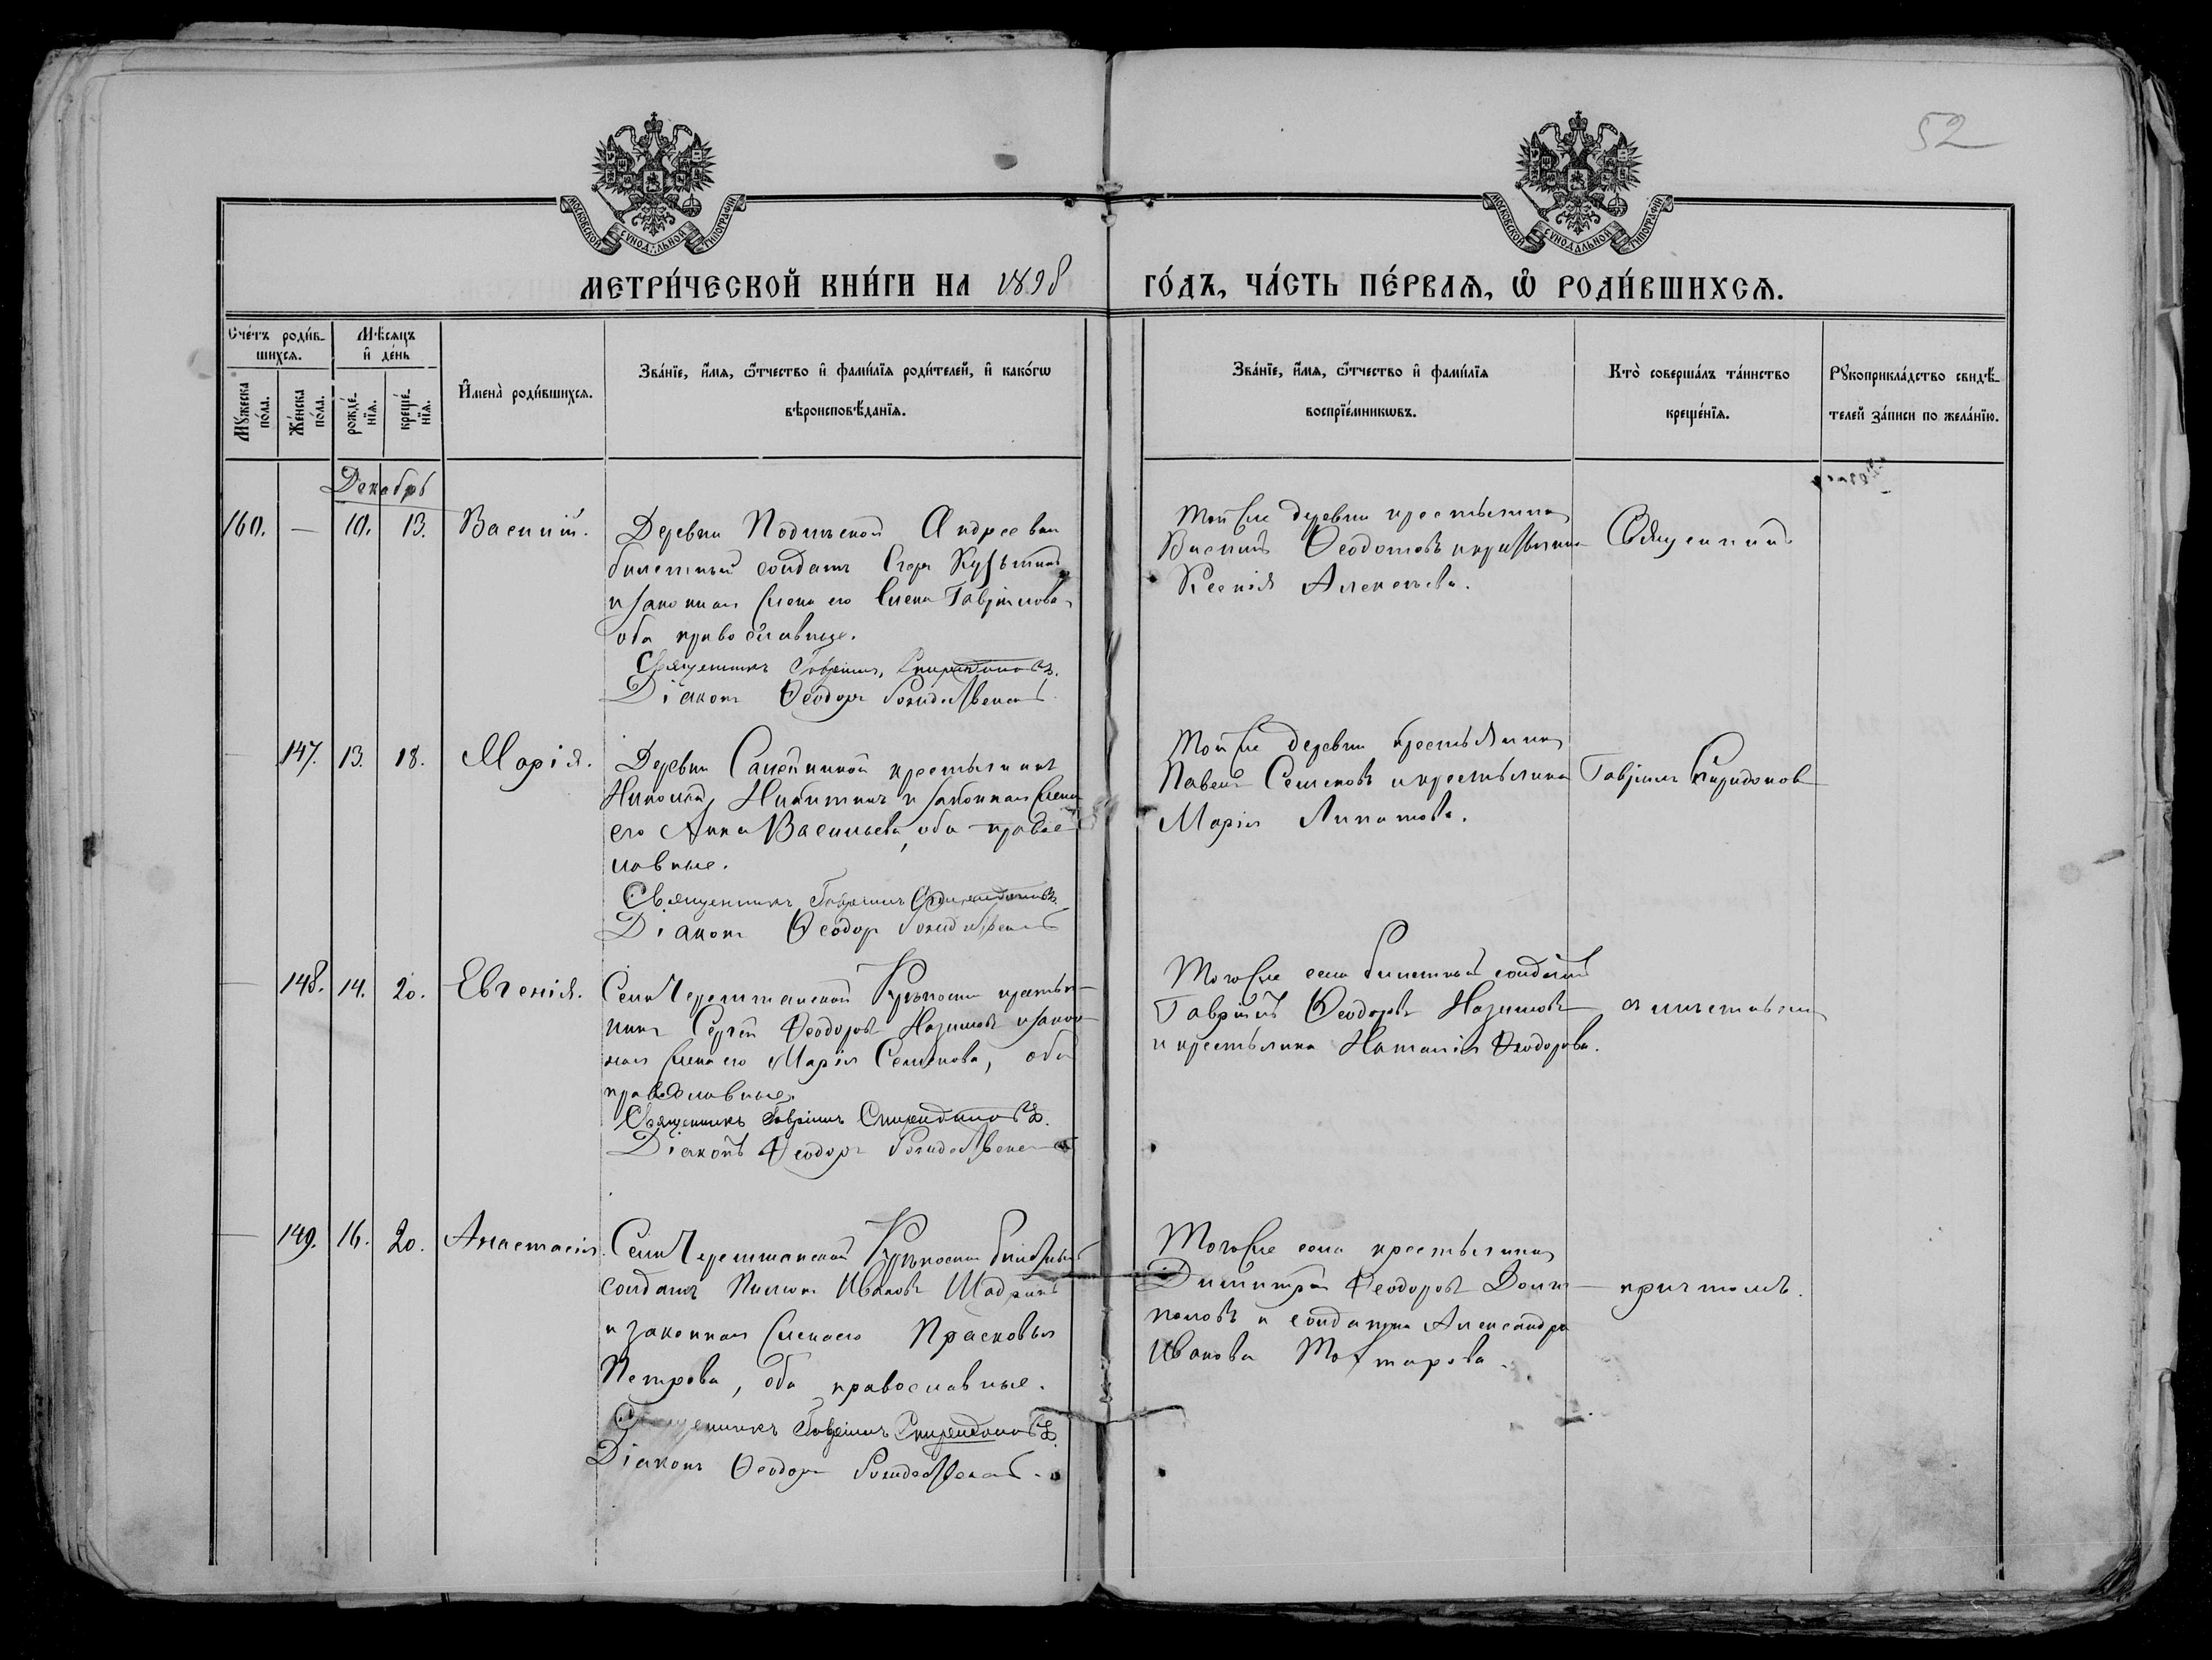 52
МОСКОВСКОЙ СѴНОДАЛЬНОЙ ТИПОГРАФІИ
МОСКОВСКОЙ СѴНОДАЛЬНОЙ ТИПОГРАФІИ
МЕТРИ́ЧЕСКОЙ КНИ́ГИ НА 1898
ГО́ДЪ, ЧА́СТЬ ПЕ́РВАѦ, Ѡ҆ РОДИ́ВШИХСѦ.
Сче́тъ роди́в-
шихсѧ.
Мꙋ́жеска по́ла.
Же́нска по́ла.
Мѣ́сѧцъ
и҆ де́нь
рожде́-
нїѧ.
креще́-
нїѧ.
И҆мена̀ роди́вшихсѧ.
Зва́нїе, и҆́мѧ, ѻ҆́тчество и҆ фами́лїѧ роди́телей, и҆ како́гѡ
вѣроисповѣ́данїѧ.
Зва́нїе, и҆́мѧ, ѻ҆́тчество и҆ фами́лїѧ
воспрїе́мникѡвъ.
Кто̀ соверша́лъ та́инство
креще́нїѧ.
Рꙋкоприкла́дство свидѣ́-
телей за́писи по жела́нїю.
Декабрь
160. — 10. 13. Василій.
Деревни Андреевки
билетный солдатъ Егоръ Кузьминъ
и законная жена его Елена Гаврилова,
оба православные.
Священникъ Гавріилъ Спиридоновъ.
Діаконъ Ѳеодоръ Рождественскій
Той же деревни крестьянинъ
Василій Ѳеодотовъ и крестьянка
Ксенія Алексѣева.
Священникъ
— 147. 13. 18. Марія.
Деревни крестьянинъ
Николай Никитинъ и законная жена
его Анна Васильева, оба правос-
лавные.
Священникъ Гавріилъ Спиридоновъ.
Діаконъ Ѳеодоръ Рождественскій
Той же деревни крестьянинъ
Павелъ Семеновъ и крестьянка
Марія Липатова.
Гавріилъ Спиридоновъ
— 148. 14. 20. Евгенія.
Села Черемшанской Крѣпости крестья-
нинъ Сергѣй Ѳеодоровъ Назимовъ и закон-
ная жена его Марія Семенова, оба
православные.
Священникъ Гавріилъ Спиридоновъ.
Діаконъ Ѳеодоръ Рождественскій
Того же села билетный солдатъ
Гавріилъ Ѳеодоровъ Назимовъ
и крестьянка Наталія Ѳеодорова.
съ
— 149. 16. 20. Анастасія.
Села Черемшанской Крѣпости билетный
солдатъ Иванъ Шадринъ
и законная жена его Прасковья
Петрова, оба православные.
Священникъ Гавріилъ Спиридоновъ.
Діаконъ Ѳеодоръ Рождественскій.
Того же села крестьянинъ
Димитрій Ѳеодоровъ Долго-
половъ и солдатка Александра
Иванова
причтомъ.